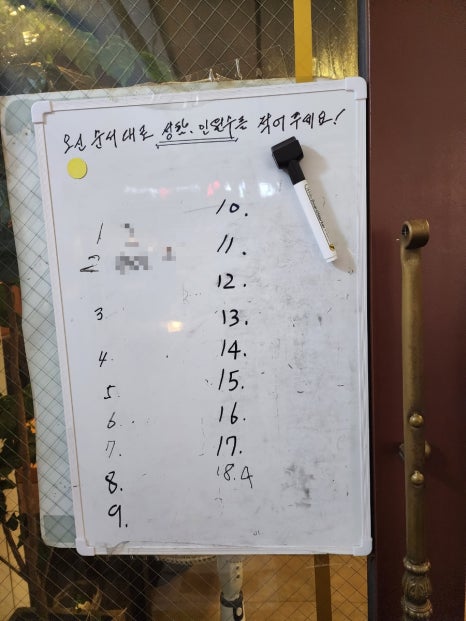 오신 순서대로 성함, 인원수를 적어주세요!
1
2
3.
4.
5.
6.
7.
8.
9.
10.
11.
12.
13.
14.
15.
16.
17.
18.